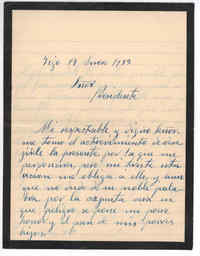 Vigo 18 Enero 1939
Señor
Presidente
Mi respetable y digno Señor
me tomo el atrevimiento de diri
jirle la presente por la que me
 pero mi triste situ
acion me obliga a ello, y ami
que no de mi noble pala
bra por la que esta una en
que peligra y tiene mi pobre
 y el pan de mis pobres
hijos.